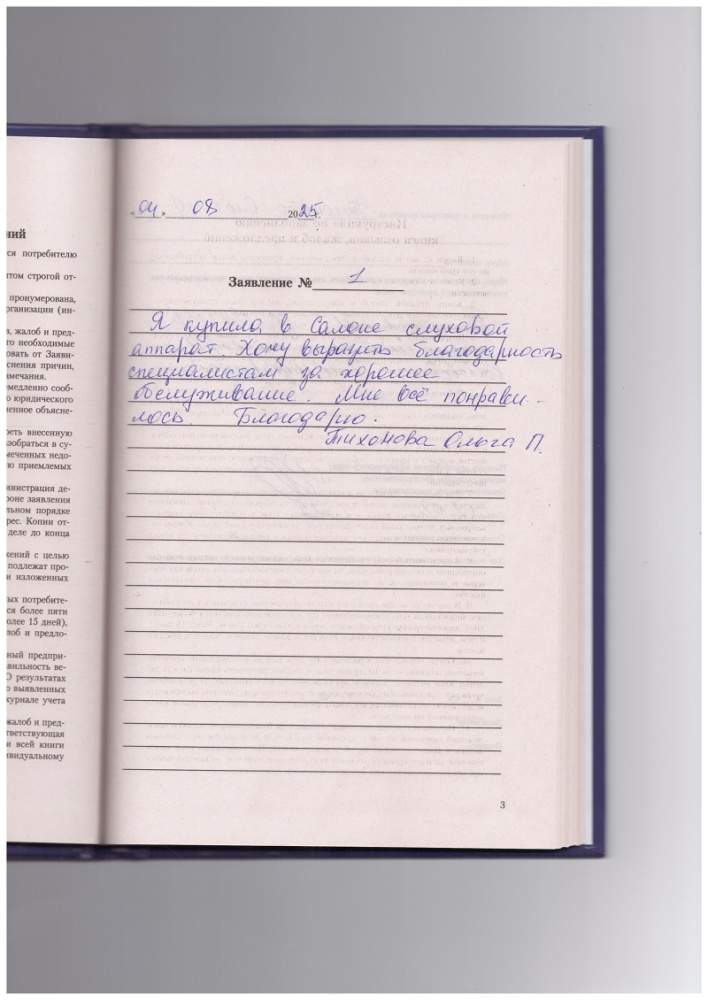 ний
ся потребителю
том строгой от-
пронумерована,
рганизации (ин-
а, жалоб и пред-
го необходимые
ровать от Заяви-
снения причин,
имечания.
медленно сооб-
о юридического
ненное объясне-
реть внесенную
азобраться в су-
меченных недо-
ию приемлемых
министрация де-
роне заявления
льном порядке
рес. Копии от-
деле до конца
жений с целью
подлежат про-
и изложенных
ых потребите-
ся более пяти
олее 15 дней),
лоб и предло-
ный предпри-
авильность ве-
О результатах
о выявленных
журнале учета
жалоб и пред-
тветствующая
и всей книги
ивидуальному
«04» 08 2025 г.
Заявление № 1
Я купила в Салоне слуховой
аппарат. Хочу выразить благодарность
специалистам за хорошее
обслуживание. Мне всё понрави-
лось. Благодарю.
Тихонова Ольга П.
3